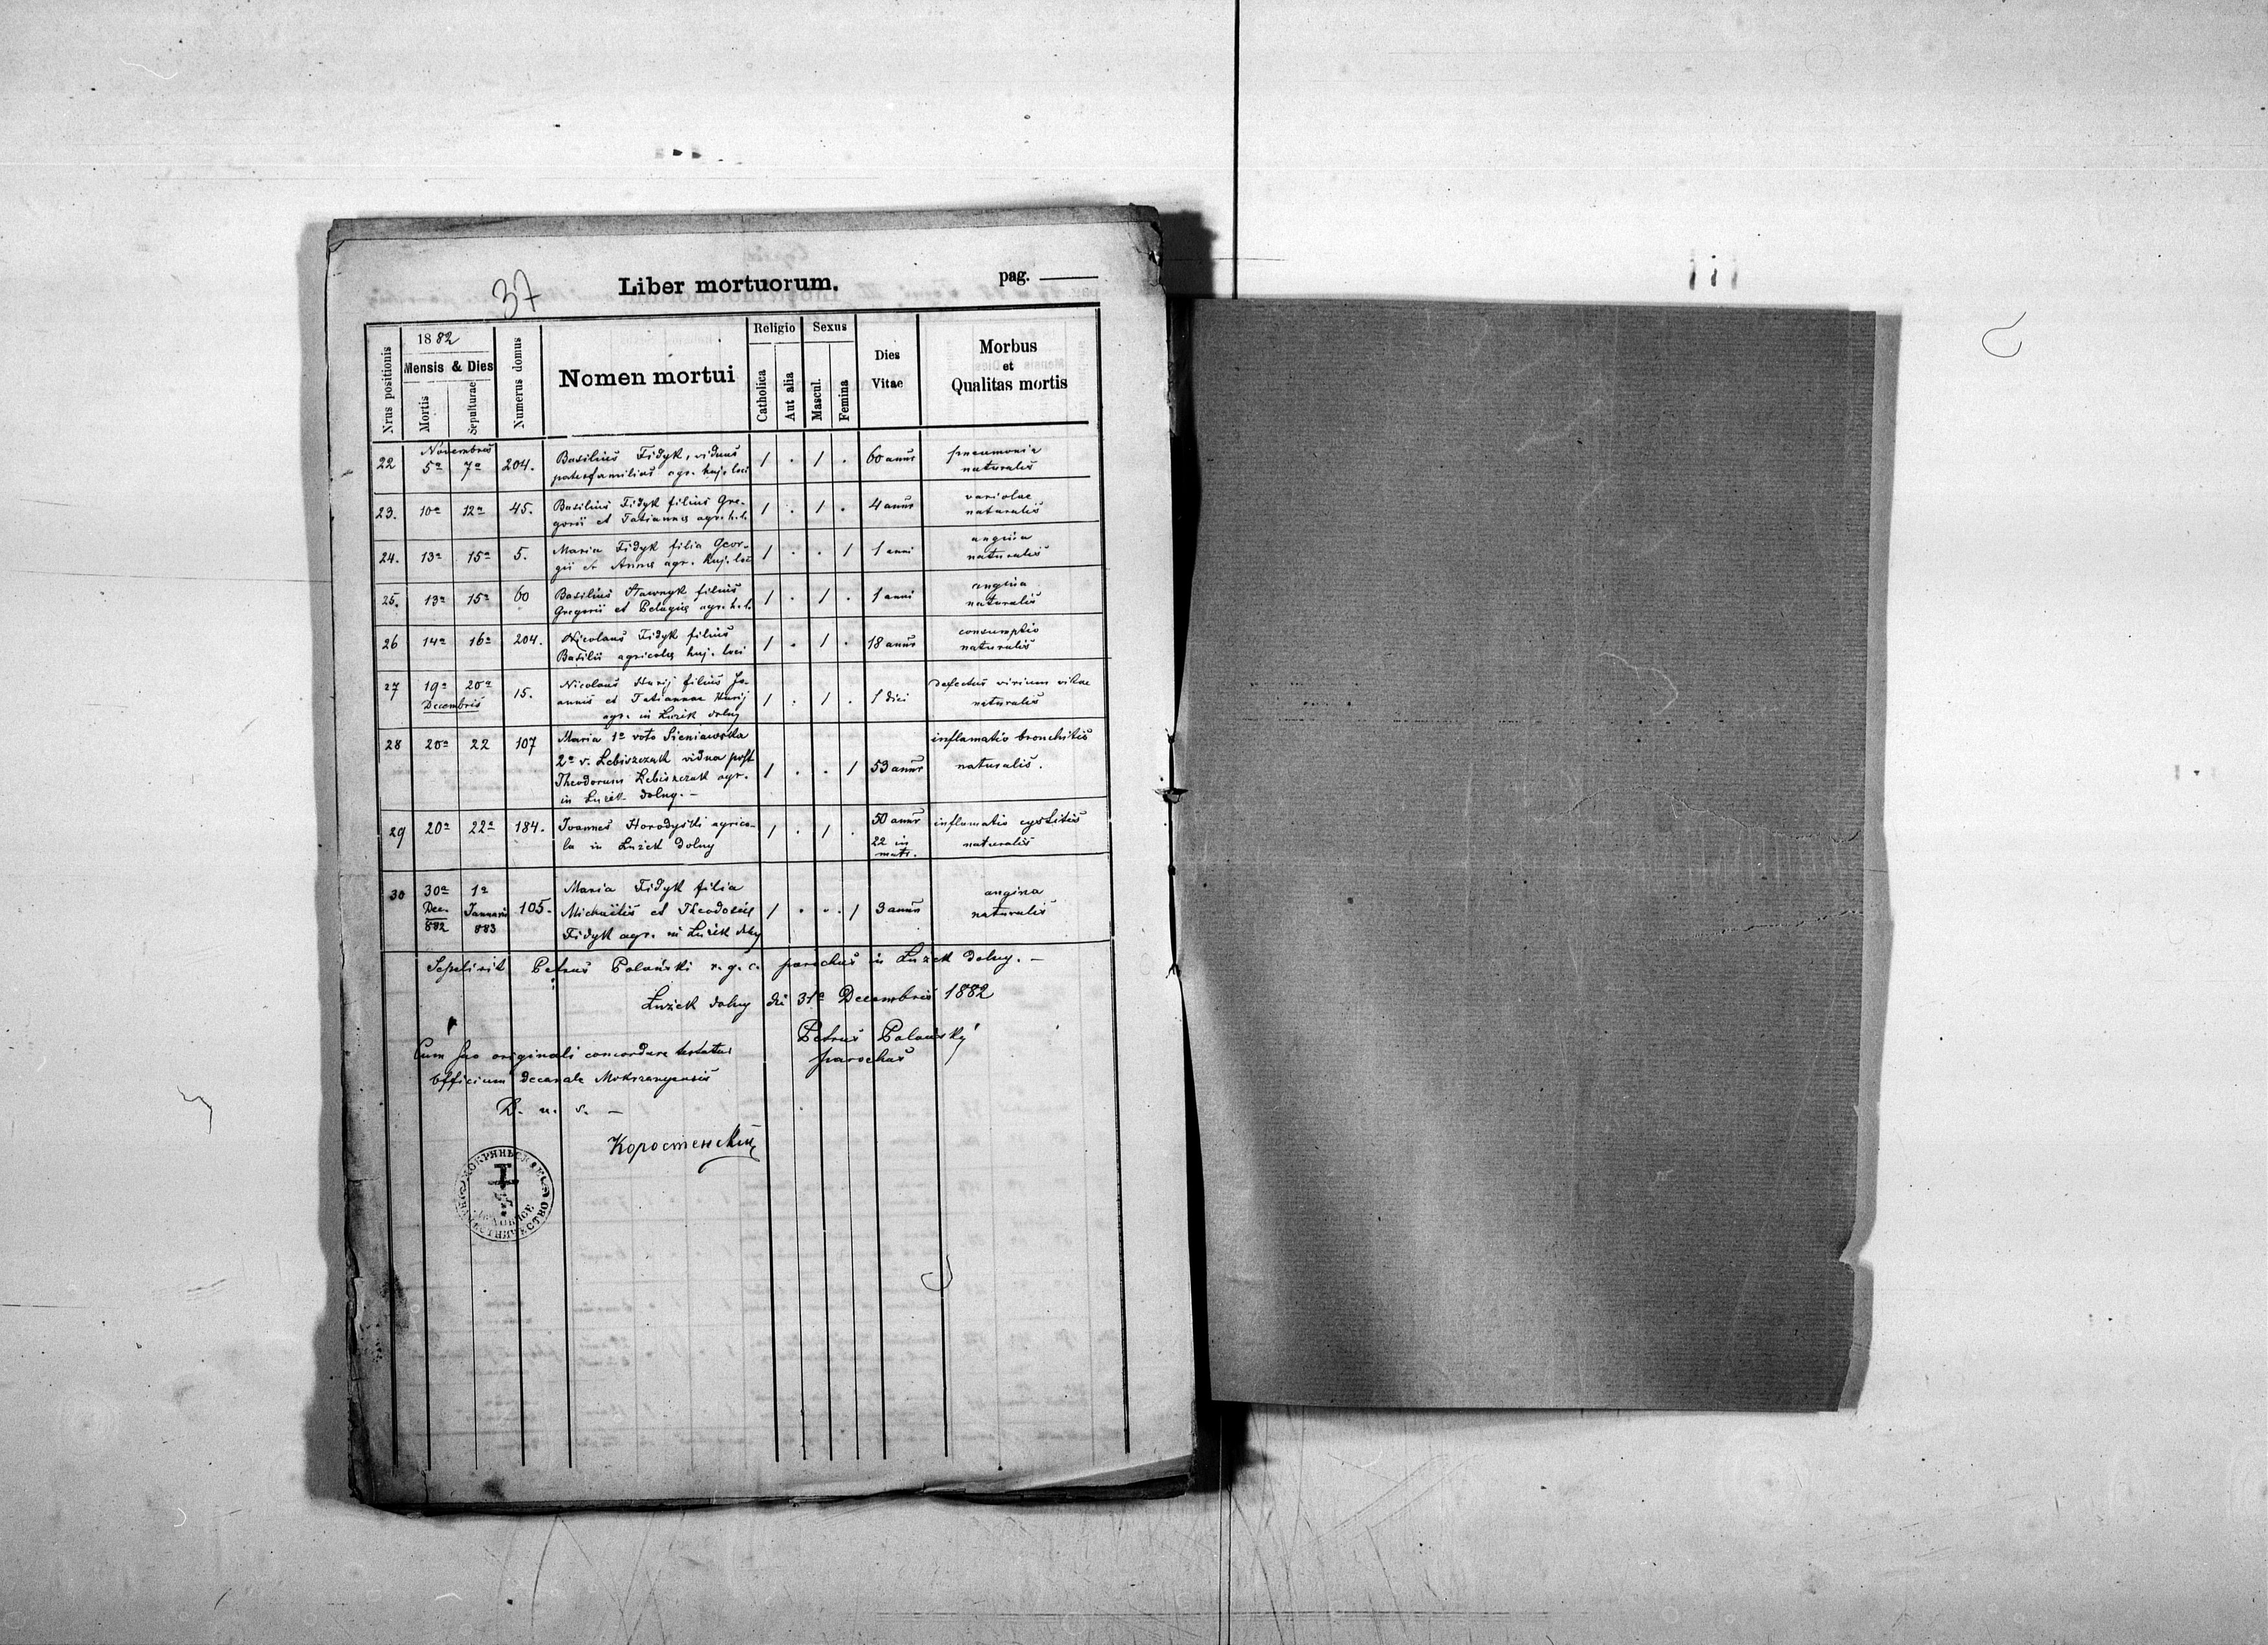 37
Liber mortuorum.
pag.
Nrus positionis
1882
Mensis & Dies
Mortis
Sepulturae
Numerus domus
Nomen mortui
Religio
Catholica
Aut alia
Sexus
Mascul.
Femina
Dies
Vitae
Morbus
et
Qualitas mortis
Novembris
22 5ª 7ª 204. Basilius Fidyk, viduus 1 . 1 . 60 annor pneumonia
paterfamilias agr. huj. loci naturalis
23. 10ª 12ª 45. Basilius Fidyk filius Gre- 1 . 1 . 4 annor variolae
gorii et Tatianna agr. h. l. naturalis
24. 13ª 15ª 5. Maria Fidyk filia Geor- 1 . . 1 1 anni angina
gii et Anna agr. huj. loci naturalis
25. 13ª 15ª 60 Basilius Hawryk filius 1 . 1 . 1 anni angina
Gregorii et Pelagia agr. h. l. naturalis
26 14ª 16ª 204. Nicolaus Fidyk filius 1 . 1 . 18 annor consumptio
Basilii agricola huj. loci naturalis
27 19ª 20ª 15. Nicolaus Hurij filius Jo- 1 . 1 . 1 diei defectus virium vitae
annis et Tatiannae Hurij naturalis
agr. in Łużek dolny
Decembris
28 20ª 22 107 Maria 1ª voto Sieniawska inflamatio bronchitis
2ª v. Lebiszczak vidua post 1 . . 1 53 annor naturalis.
Theodorum Lebiszczak agr.
in Łużek dolny. –
29 20ª 22ª 184. Ioannes Horodyski agrico- 1 . 1 . 50 annor inflamatio cystitis
la in Łużek dolny 22 in naturalis
matr.
30 30ª 1ª 105. Maria Fidyk filia 1 . . 1 3 annor angina
Dec. Januarii Michaëlis et Theodosia naturalis
882 883 Fidyk agr. in Łużek dolny
Sepelivit Petrus Polański r. g. c. parochus in Łużek dolny. –
Łużek dolny die 31ª Decembris 1882
Petrus Polański
parochus
Cum suo originali concordare testatur
Officium decanale Mokrzanyensis
D. u. s. –
Коростенскій